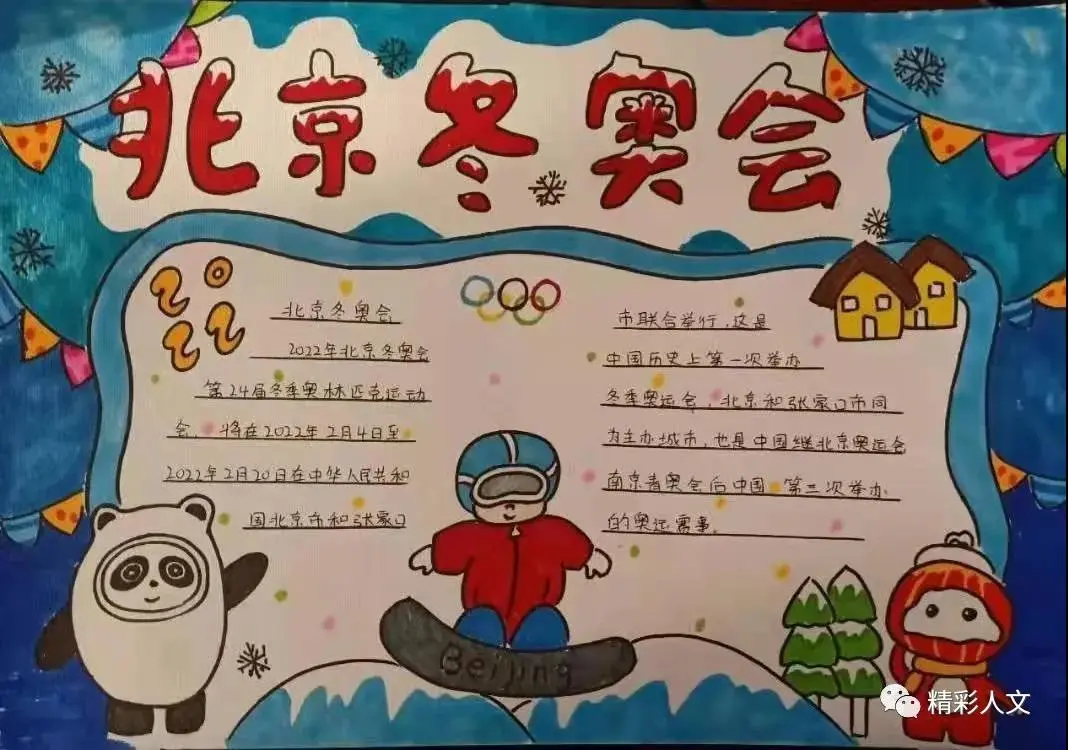 北京冬奥会
2022
北京冬奥会
2022年北京冬奥会
第24届冬季奥林匹克运动
会，将在2022年2月4日至
2022年2月20日在中华人民共和
国北京市和张家口
市联合举行，这是
中国历史上第一次举办
冬季奥运会，北京和张家口市同
为主办城市，也是中国继北京奥运会
南京青奥会后中国第三次举办
的奥运赛事。
Beijing
精彩人文